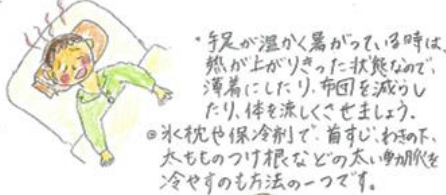 ・手足が温かく暑がっている時は、
熱が上がりきった状態なので、
薄着にしたり、布団を減らし
たり、体を涼しくさせましょう。
◎氷枕や保冷剤で、首すじ、わきの下、
太もものつけ根などの太い動脈を
冷やすのも方法の一つです。